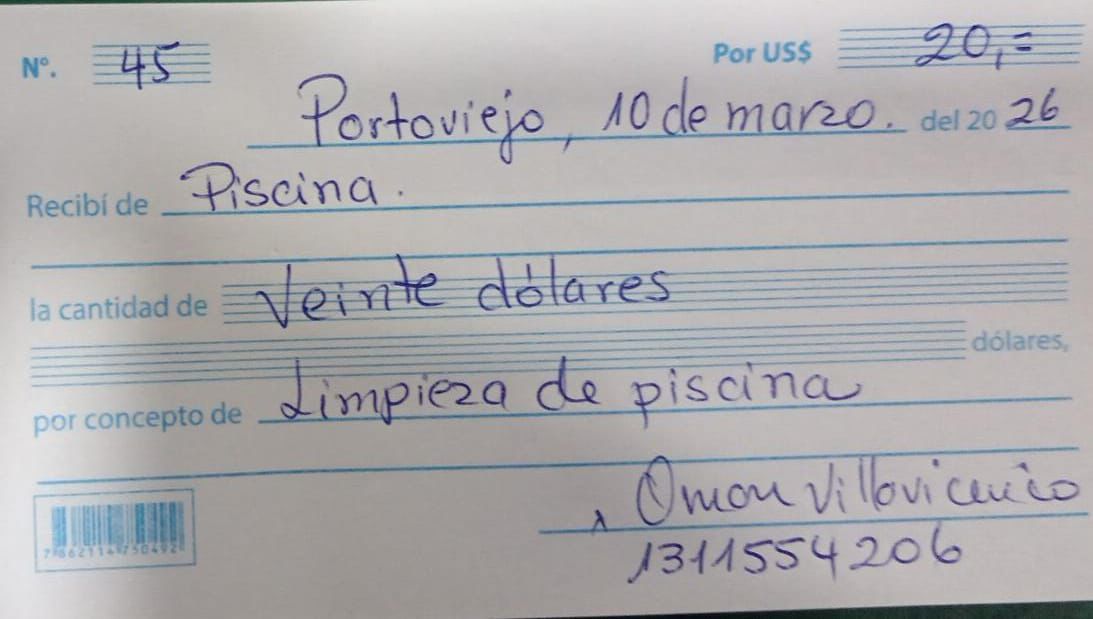 Nº. 45 Por US$ 20,=
Portoviejo, 10 de marzo. del 20 26
Recibí de Piscina.
la cantidad de Veinte dólares
dólares,
por concepto de Limpieza de piscina
Omar Villavicencio
1311554206